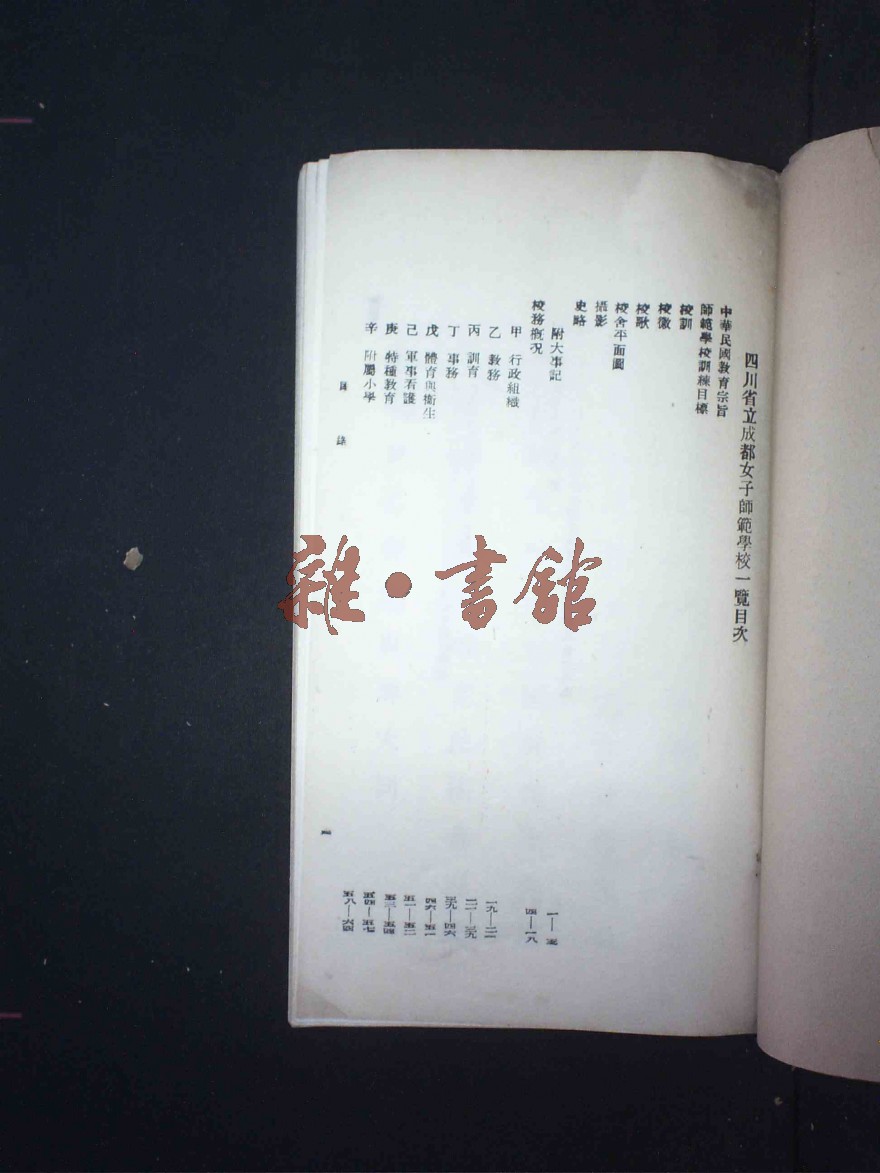 四川省立成都女子師範學校一覽目次
中華民國敎育宗旨
師範學校訓練目標
校訓
校徽
校歌
校舍平面圖
攝影
史略
附大事記
校務槪況
甲 行政組織
乙 敎務
丙 訓育
丁 事務
戊 體育與衞生
己 軍事看護
庚 特種敎育
辛 附屬小學
四—一八
一九—二一
二一—三九
三九—四六
四六—五一
五一—五二
五三—五四
五四—五七
五八—六四
目錄
雜·書館